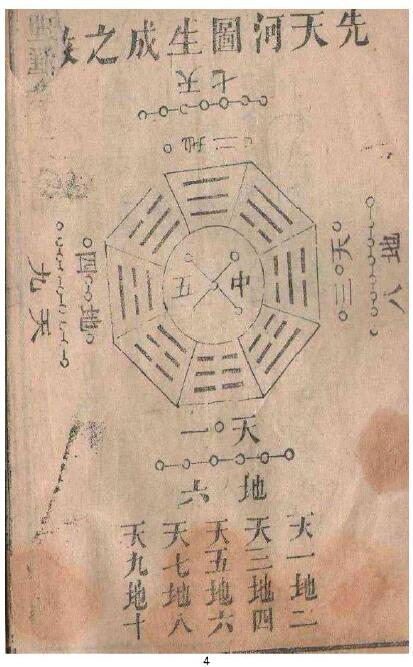 先天河圖生成之數
天七
地二
地八
天三
中五
地四
天九
天一
地六
天一地二
天三地四
天五地六
天七地八
天九地十
4